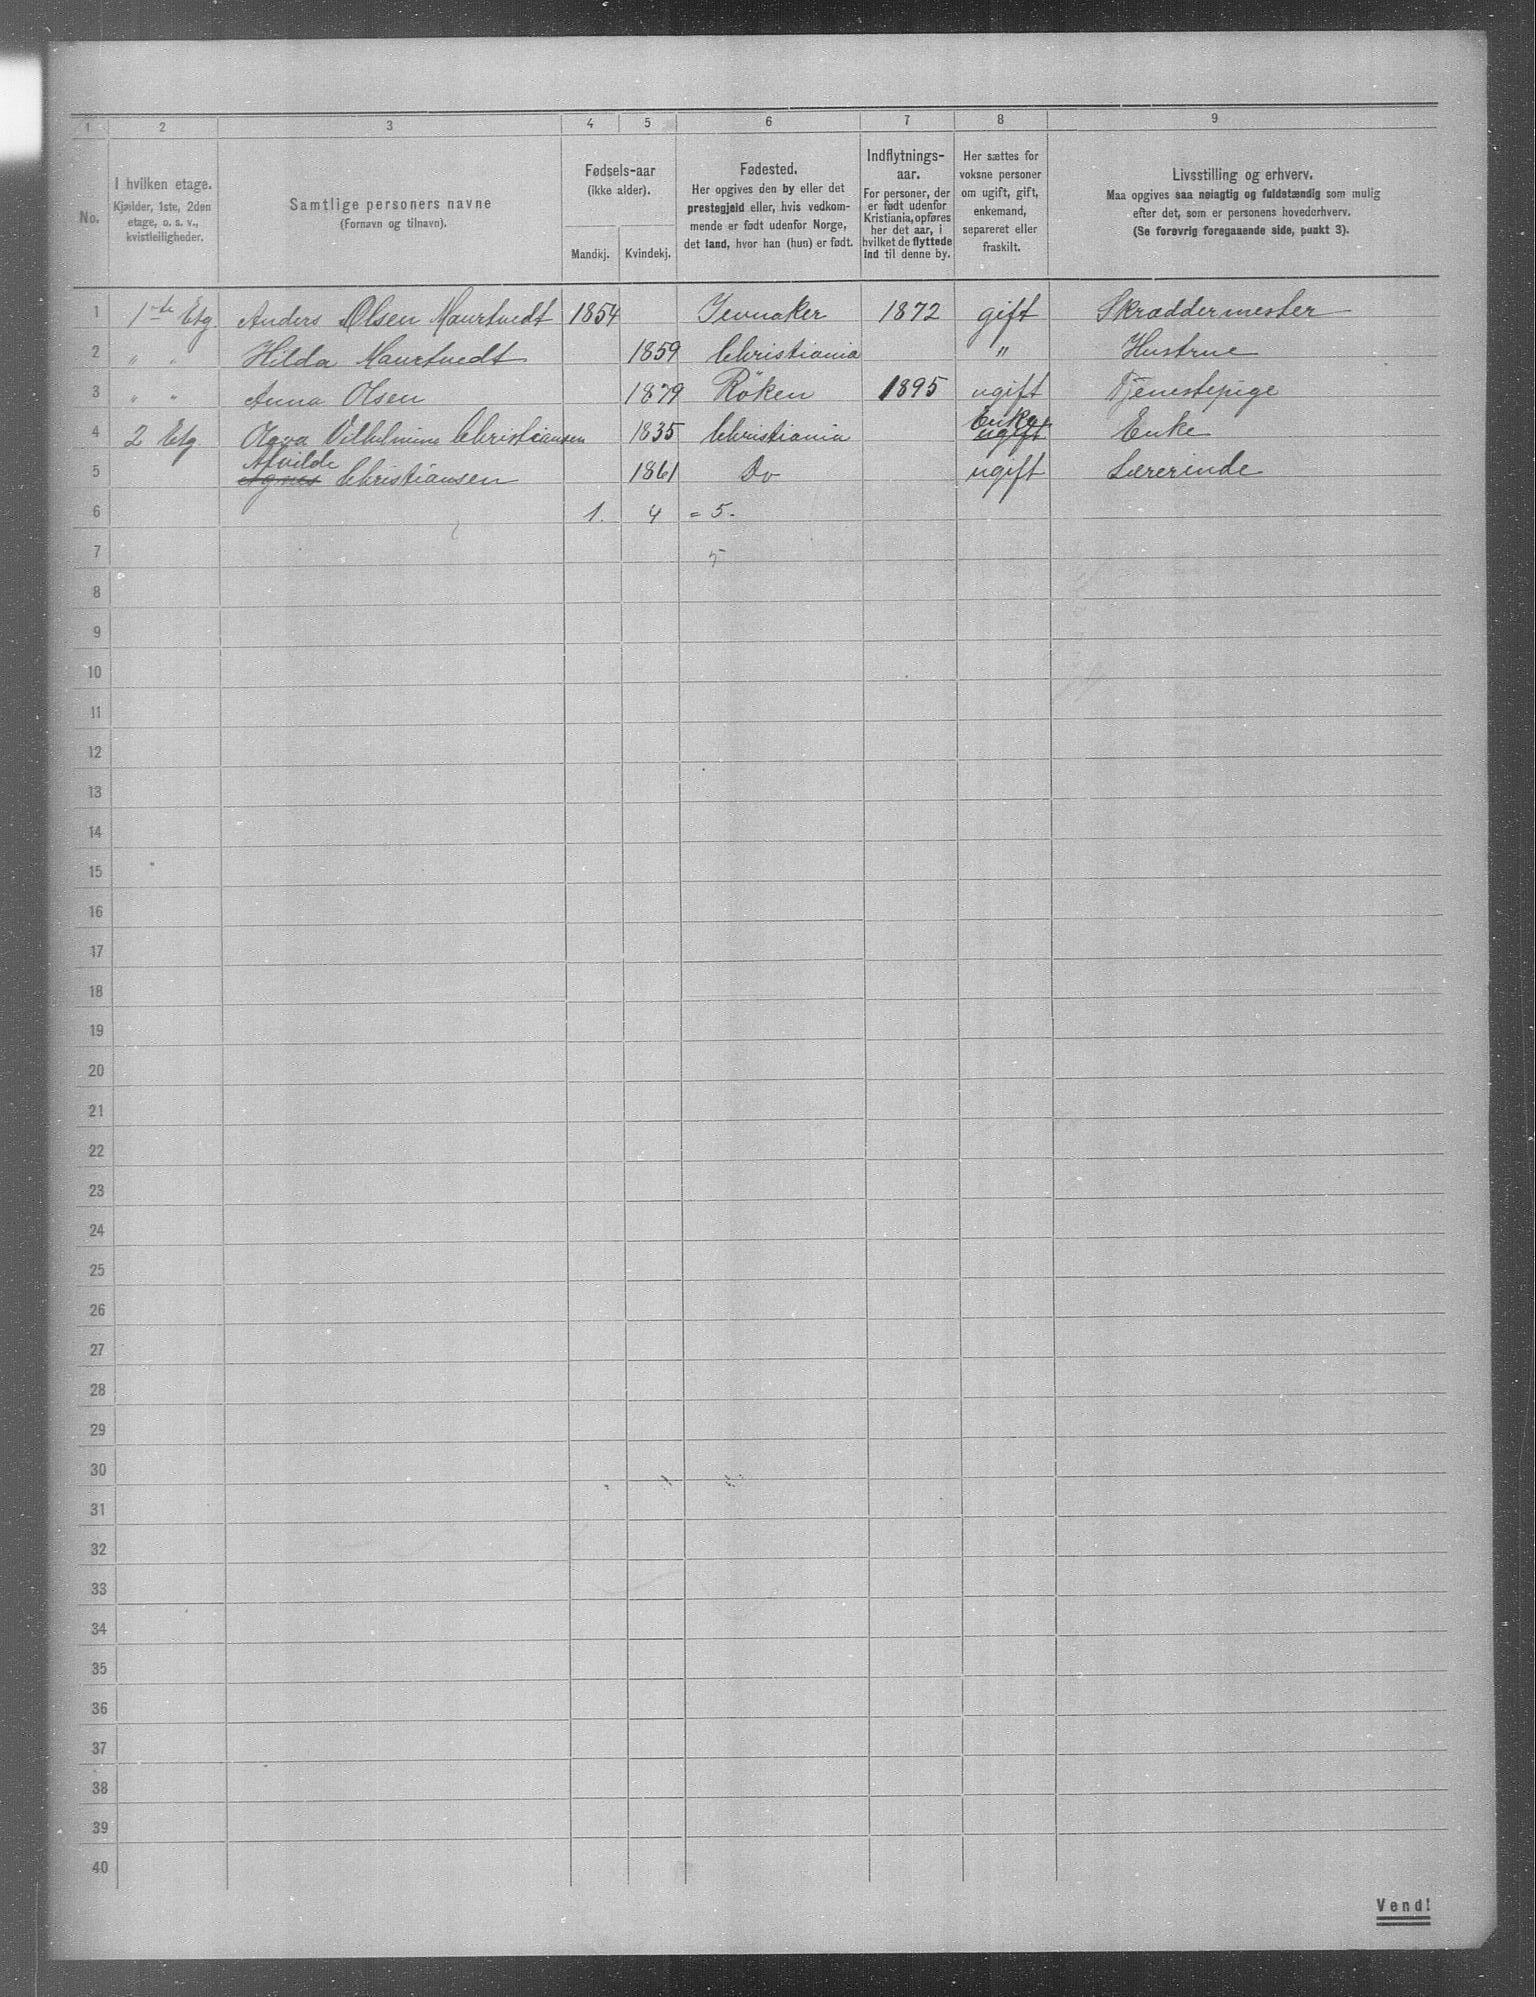 1 2 3 4 5 6 7 8 9
No.
I hvilken etage.
Kjælder, 1ste, 2den
etage, o. s. v.,
kvistleiligheder.
Samtlige personers navne
(Fornavn og tilnavn).
Fødsels-aar
(ikke alder).
Mandkj. Kvindekj.
Fødested.
Her opgives den by eller det
prestegjeld eller, hvis vedkom-
mende er født udenfor Norge,
det land, hvor han (hun) er født.
Indflytnings-
aar.
For personer, der
er født udenfor
Kristiania, opføres
her det aar, i
hvilket de flyttede
ind til denne by.
Her sættes for
voksne personer
om ugift, gift,
enkemand,
separeret eller
fraskilt.
Livsstilling og erhverv.
Maa opgives saa nøiagtig og fuldstændig som mulig
efter det, som er personens hovederhverv.
(Se forøvrig foregaaende side, punkt 3).
1 1ste Etg. Anders Olsen Maurtvedt 1854 Jevnaker 1872 gift Skræddermester
2 " " Hilda Maurtvedt 1859 Christiania " Hustrue
3 " " Anna Olsen 1879 Röken 1895 ugift Tjenestepige
Enke
4 2 Etg. Vilhelmine Christiansen 1835 Christiania ugift Enke
5 Agnes Christiansen 1861 Do ugift Lærerinde
6 1. 4 = 5.
7 5
8
9
10
11
12
13
14
15
16
17
18
19
20
21
22
23
24
25
26
27
28
29
30
31
32
33
34
35
36
37
38
39
40
Vend!